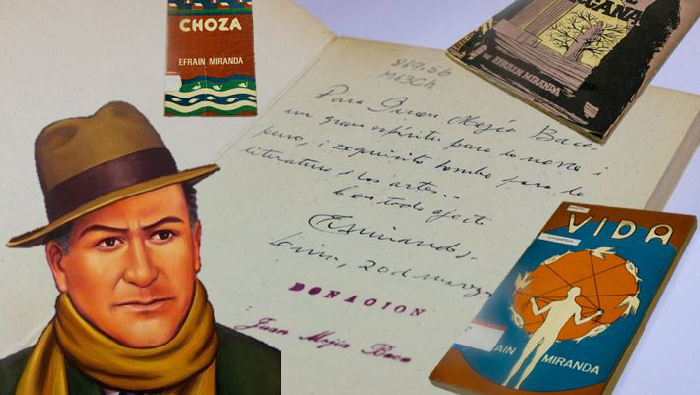 CHOZA
EFRAIN MIRANDA
DE EFRAIN MIRANDA
Para Juan Mejía Baca
un gran espíritu para lo nuestro i
peruano, i exquisito hombre para la
literatura i las artes..
Con todo afecto
EMiranda
Lima, 20 de marzo
DONACION
Juan Mejía Baca
VIDA
AIN MIRANDA